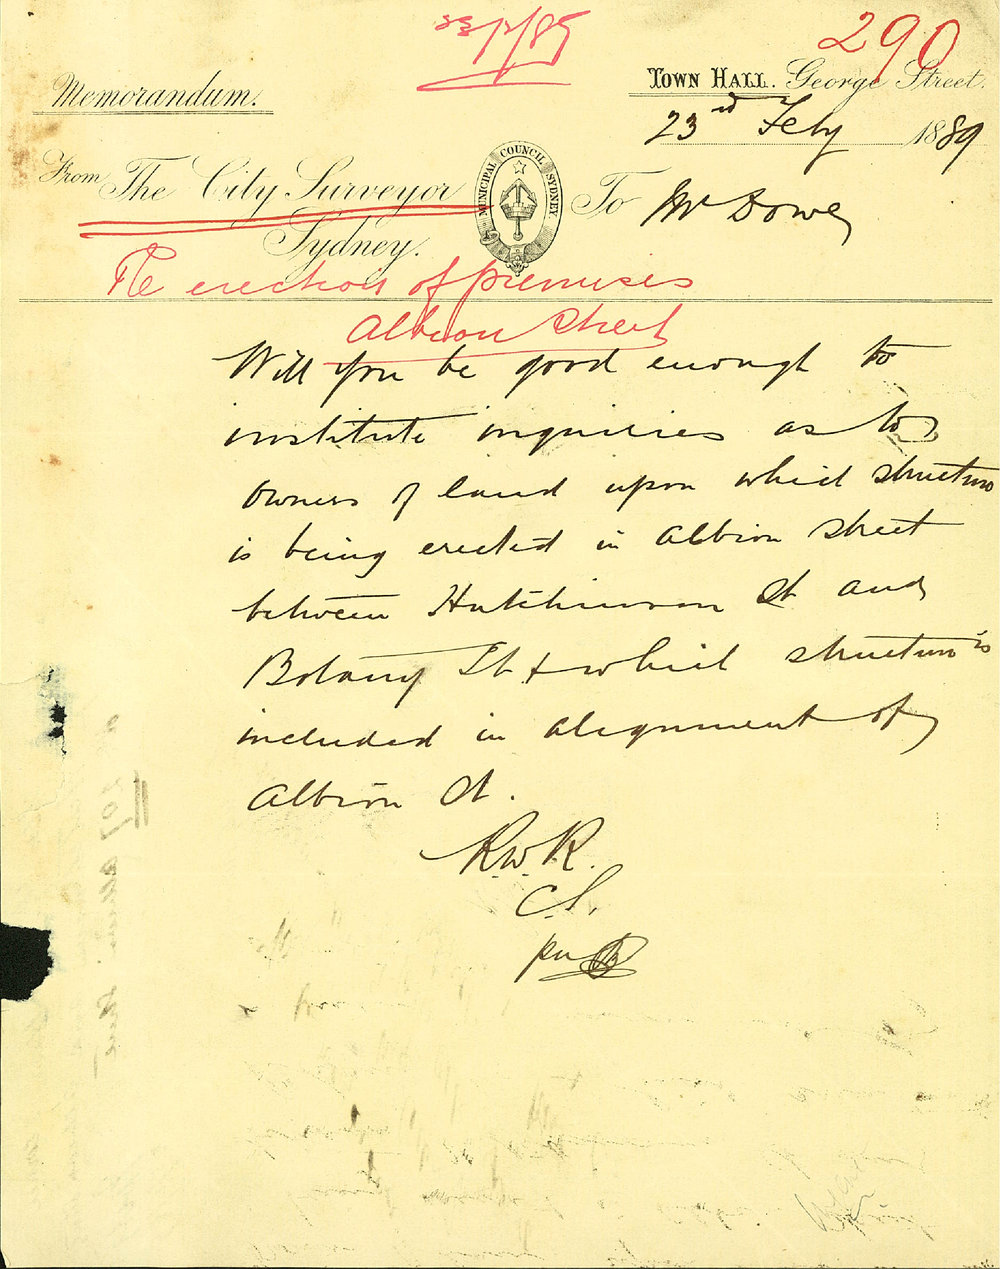 23/2/89
290
Memorandum.
TOWN HALL. George Street.
23rd Feby 1889
From The City Surveyor
Sydney.
MUNICIPAL COUNCIL SYDNEY
To Mr Dowe
Re erection of premises
Albion Street
Will you be good enough to
institute inquiries as to
owners of land upon which structure
is being erected in Albion Street
between Hutchinson St and
Botany St & which structure is
included in alignment of
Albion St.
R.W.R.
C.S.
per